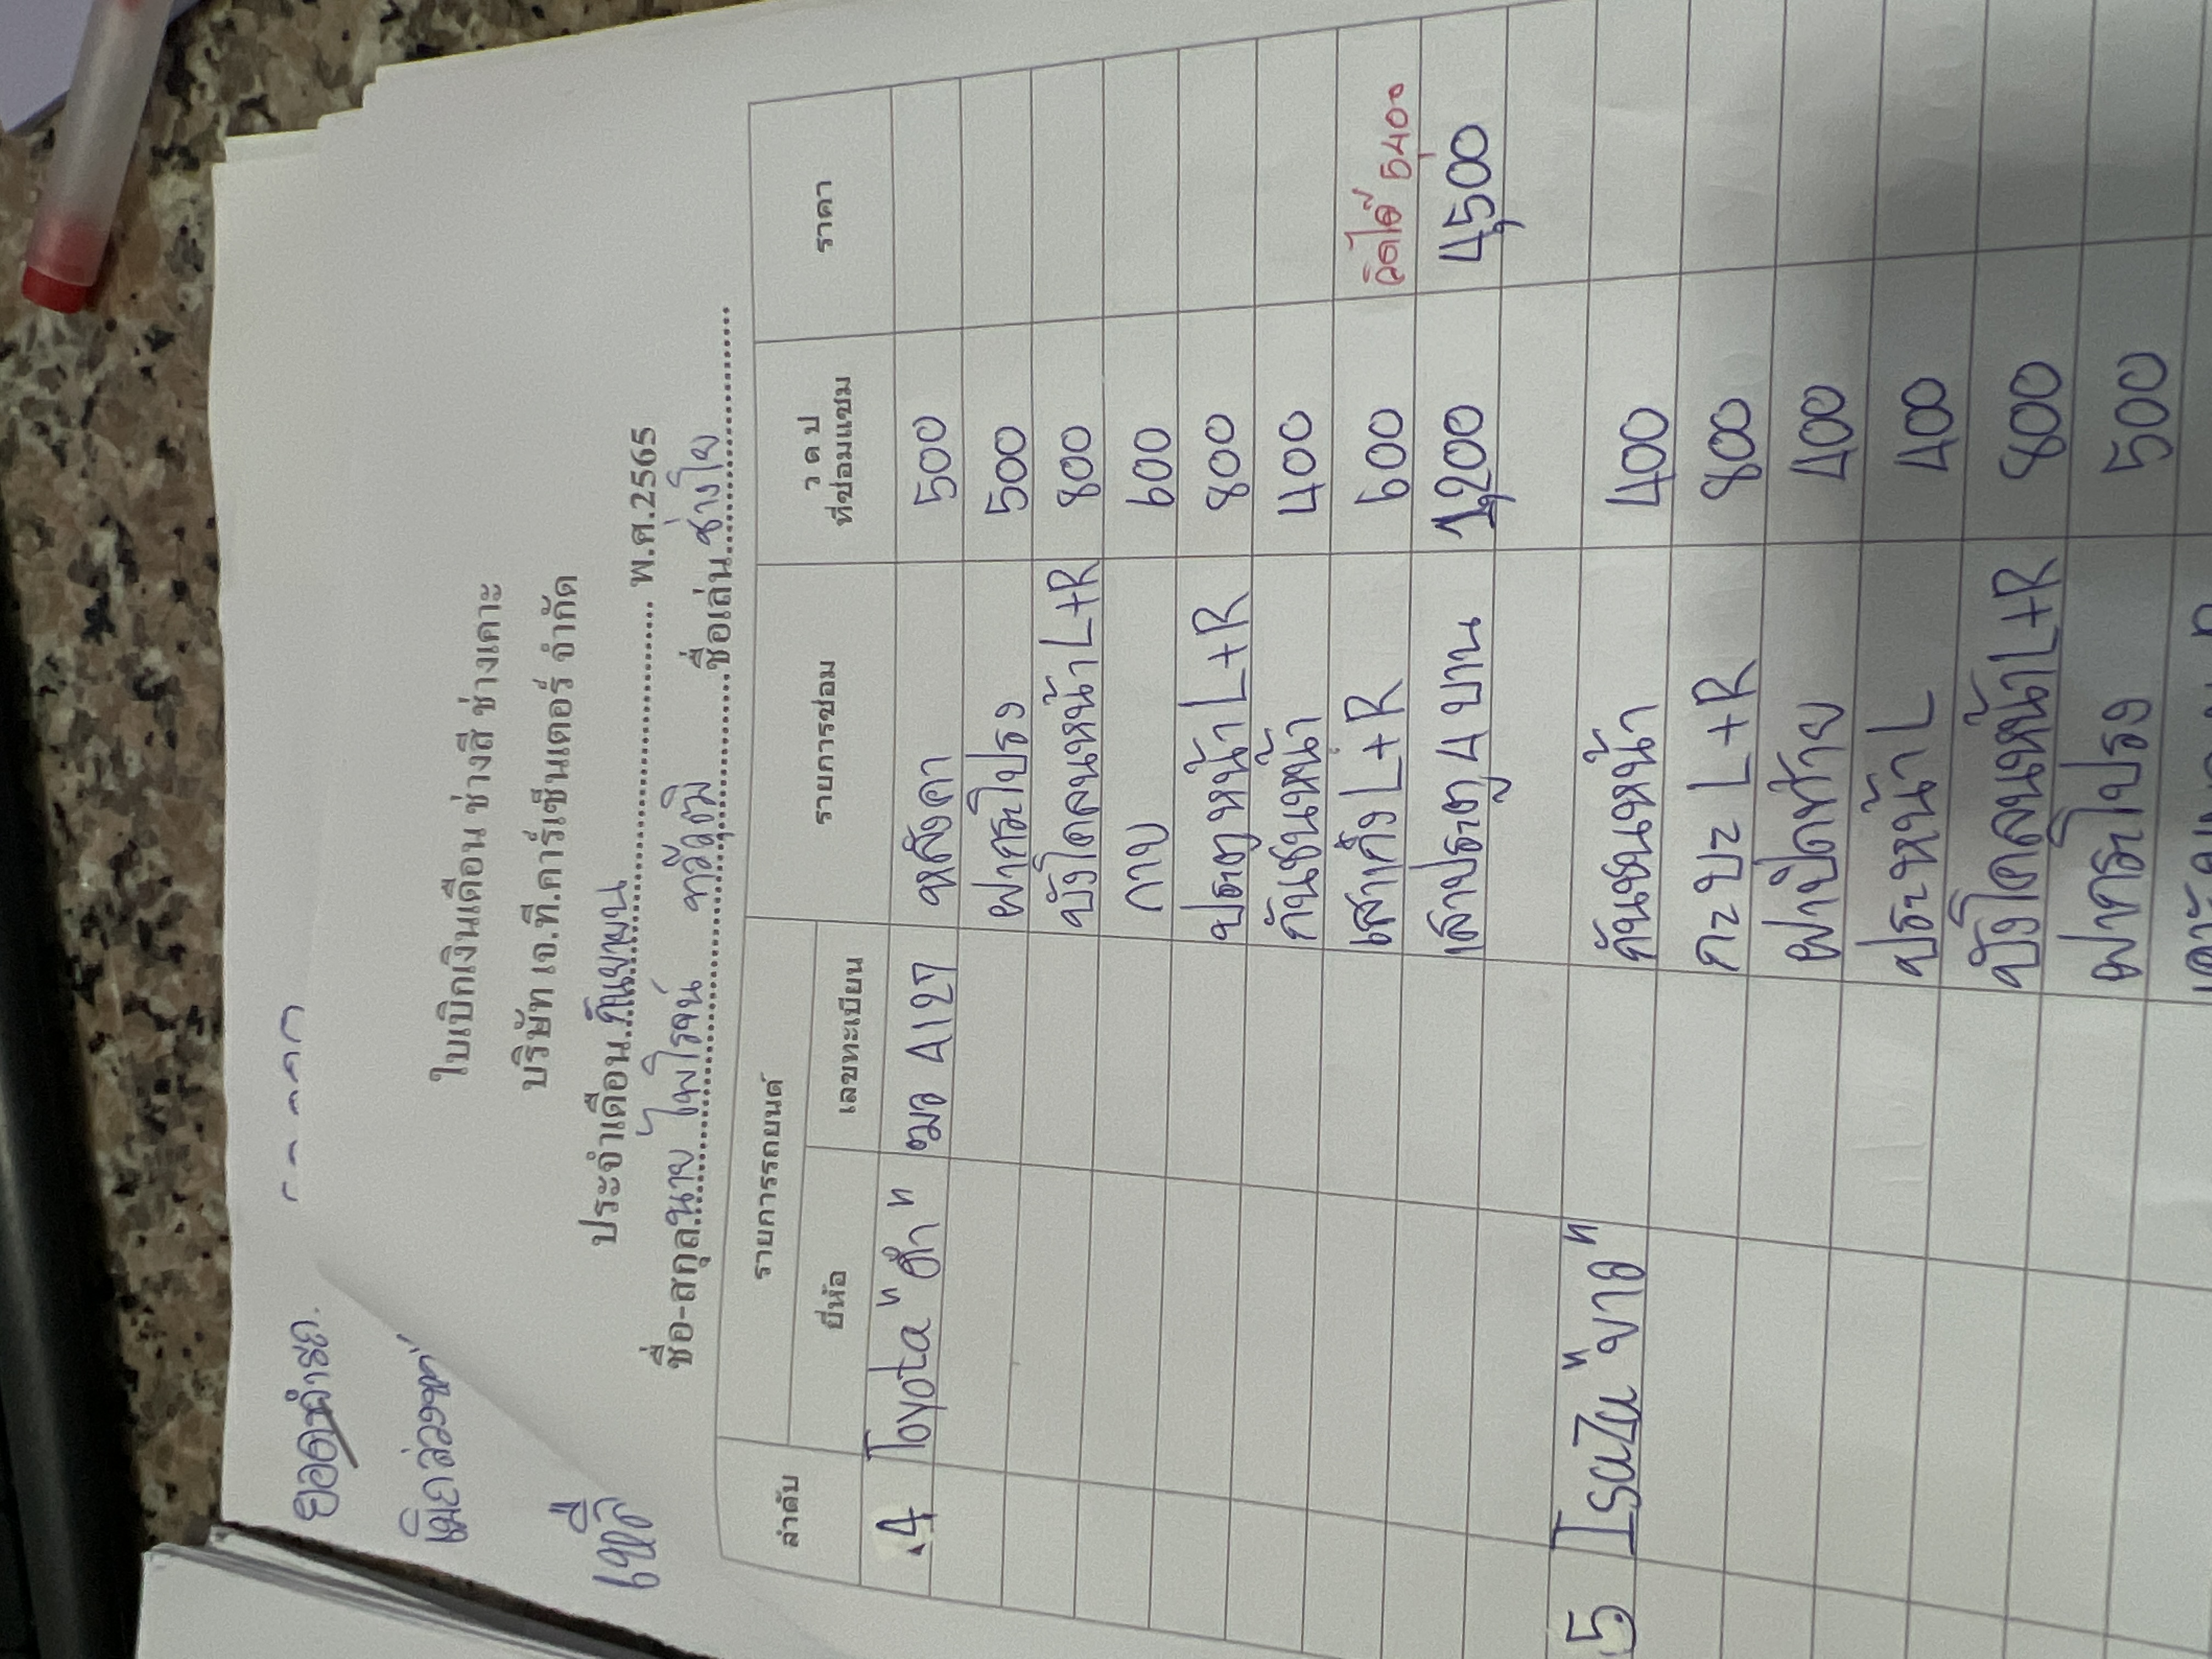 ยอดชำระ.
เบิกล่วงหน้า
เหลือ
ใบเบิกเงินเดือน ช่างสี ช่างเคาะ
บริษัท เจ.ที.คาร์เซ็นเตอร์ จำกัด
ประจำเดือน กันยายน พ.ศ.2565
ชื่อ-สกุล นาย ไพโรจน์ ชื่อเล่น ช่างโย
ลำดับ รายการรถยนต์ รายการซ่อม ว ด ป ที่ซ่อมแซม ราคา
ยี่ห้อ เลขทะเบียน
4 Toyota "ดำ" ฆอ 4127 หลังคา 500
ฝากระโปรง 500
บังโคลนหน้า L+R 800
กาบ 600
ประตูหน้า L+R 800
กันชนหน้า 400
เสาเก๋ง L+R 600 คิดได้ 5,400
เสาประตู 4 บาน 1,200 4,500
5 Isuzu "ขาว" กันชนหน้า 400
กะบะ L+R 800
ฝาปิดท้าย 400
ประหน้า L 400
บังโคลนหน้า L+R 800
ฝากระโปรง 500